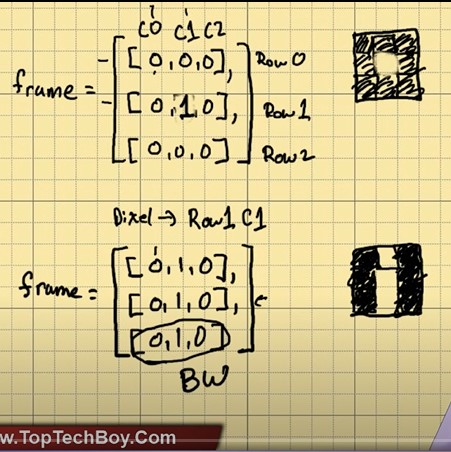 C0 C1 C2
frame = [ [ 0, 0, 0 ], Row 0
[ 0, 1, 0 ], Row 1
[ 0, 0, 0 ] ] Row 2
Pixel → Row 1 C1
frame = [ [ 0, 1, 0 ],
[ 0, 1, 0 ],
[ 0, 1, 0 ] ]
BW
w.TopTechBoy.Com